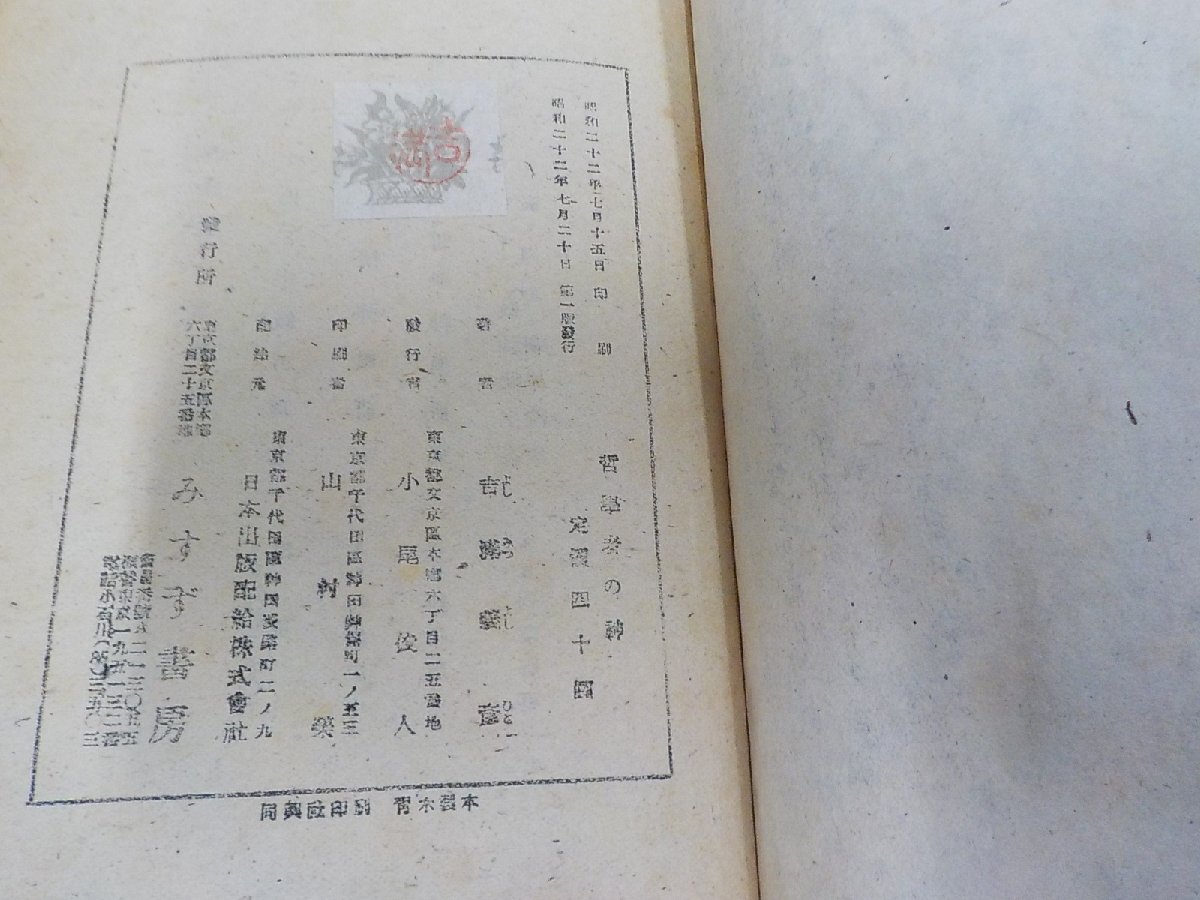 昭和二十二年七月十五日 印 刷
昭和二十二年七月二十日 第一版發行
哲學者の神
定價四十圓
著 者
吉滿義彥
發行者
東京都文京區本鄕六丁目二五番地
小尾俊人
印刷者
東京都千代田區神田 町一ノ五三
山村榮
配給元
東京都千代田區神田淡路町二ノ九
日本出版配給株式會社
發行所
東京都文京區本鄕
六丁目二十五番地
みすず書房
同興社印刷 青木製本